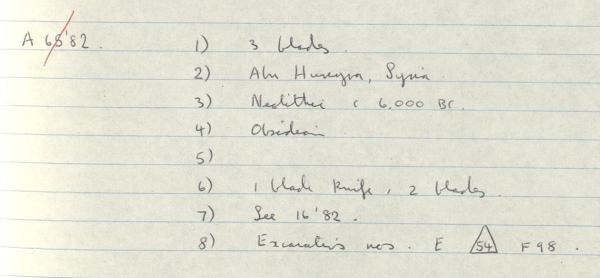 A 68'82. 1) 3 blades.
2) Abu Hureyra, Syria
3) Neolithic c 6,000 BC.
4) Obsidian
5)
6) 1 blade knife, 2 blades.
7) See 16'82.
8) Excavator's nos. E 54 F98.